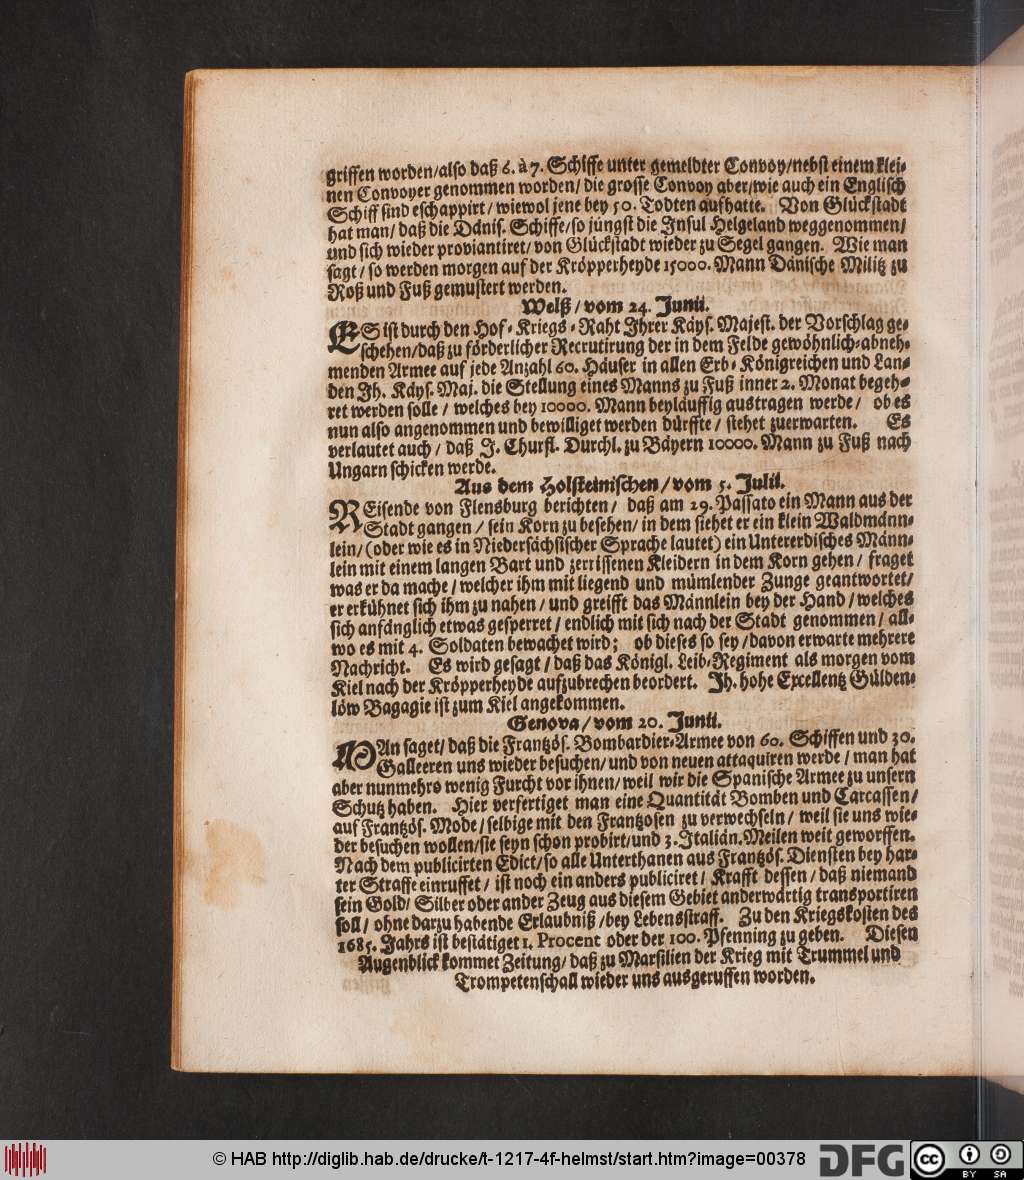 griffen worden/also daß 6. à 7. Schiffe unter gemeldter Convoy/nebst einem klei-
nen Convoyer genommen worden/ die grosse Convoy aber/wie auch ein Englisch
Schiff sind eschappirt/ wiewol jene bey 50. Todten aufhatte. Von Glückstadt
hat man/ daß die Dänis. Schiffe/so jüngst die Insul Helgeland weggenommen/
und sich wieder proviantiret/ von Glückstadt wieder zu Segel gangen. Wie man
sagt/ so werden morgen auf der Kröpperheyde 15000. Mann Dänische Militz zu
Roß und Fuß gemustert werden.
Welß/ vom 24. Junii.
ES ist durch den Hof-Kriegs-Raht Ihrer Käys. Majest. der Vorschlag ge-
schehen/daß zu förderlicher Recrutirung der in dem Felde gewöhnlich-abneh-
menden Armee auf jede Anzahl 60. Häuser in allen Erb-Königreichen und Lan-
den Ih. Käys. Maj. die Stellung eines Manns zu Fuß inner 2. Monat begeh-
ret werden solle/ welches bey 10000. Mann beyläuffig austragen werde/ ob es
nun also angenommen und bewilliget werden dürffte/ stehet zuerwarten. Es
verlautet auch/ daß J. Churfl. Durchl. zu Bäyern 10000. Mann zu Fuß nach
Ungarn schicken werde.
Aus dem Holsteinischen/ vom 5. Julii.
REisende von Flensburg berichten/ daß am 29. Passato ein Mann aus der
Stadt gangen/ sein Korn zu besehen/ in dem siehet er ein klein Waldmänn-
lein/(oder wie es in Niedersächsischer Sprache lautet) ein Untererdisches Männ-
lein mit einem langen Bart und zerrissenen Kleidern in dem Korn gehen/ fraget
was er da mache/ welcher ihm mit liegend und mümlender Zunge geantwortet/
er erkühnet sich ihm zu nahen/ und greifft das Männlein bey der Hand/ welches
sich anfänglich etwas gesperret/ endlich mit sich nach der Stadt genommen/ all-
wo es mit 4. Soldaten bewachet wird; ob dieses so sey/davon erwarte mehrere
Nachricht. Es wird gesagt/ daß das Königl. Leib-Regiment als morgen vom
Kiel nach der Kröpperheyde aufzubrechen beordert. Ih. hohe Excellentz Gülden-
löw Bagagie ist zum Kiel angekommen.
Genova/ vom 20. Junii.
MAn saget/ daß die Frantzös. Bombardier-Armee von 60. Schiffen und 30.
Galleeren uns wieder besuchen/ und von neuen attaquiren werde/ man hat
aber nunmehro wenig Furcht vor ihnen/ weil wir die Spanische Armee zu unsern
Schutz haben. Hier verfertiget man eine Quantität Bomben und Carcassen/
auf Frantzös. Mode/ selbige mit den Frantzosen zu verwechseln/ weil sie uns wie-
der besuchen wollen/sie seyn schon probirt/und 3. Italiän. Meilen weit geworffen.
Nach dem publicirten Edict/so alle Unterthanen aus Frantzös. Diensten bey har-
ter Straffe einruffet/ ist noch ein anders publiciret/ Krafft dessen/ daß niemand
sein Gold/ Silber oder ander Zeug aus diesem Gebiet anderwärtig transportiren
soll/ ohne darzu habende Erlaubniß/bey Lebensstraff. Zu den Kriegskosten des
1685. Jahrs ist bestätiget 1. Procent oder der 100. Pfenning zu geben. Diesen
Augenblick kommet Zeitung/ daß zu Marsilien der Krieg mit Trummel und
Trompetenschall wieder uns ausgeruffen worden.
© HAB http://diglib.hab.de/drucke/t-1217-4f-helmst/start.htm?image=00378
DFG
cc BY SA